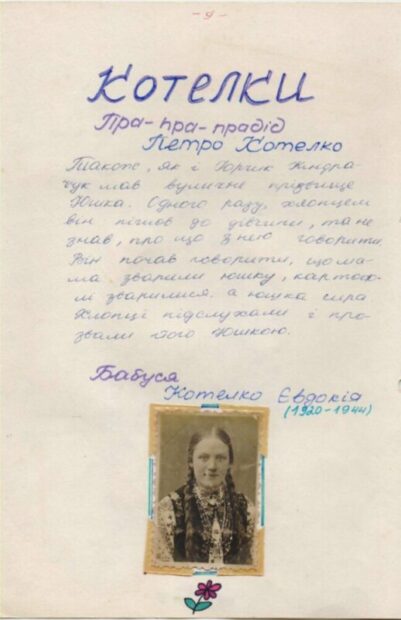 - 9 -
Котелки
Пра-пра-прадід
Петро Котелко
Також, як і Юрчик Кіндра-
чук мав вуличне прізвище
Юшка. Одного разу, хлопцем
він пішов до дівчини, та не
знав, про що з нею говорити.
Він почав говорити, що ма-
ма зварили юшку, картоп-
лі зварилися а юшка сира
Хлопці підслухали і про-
звали його Юшкою.
Бабуся
Котелко Євдокія
(1920-1944)